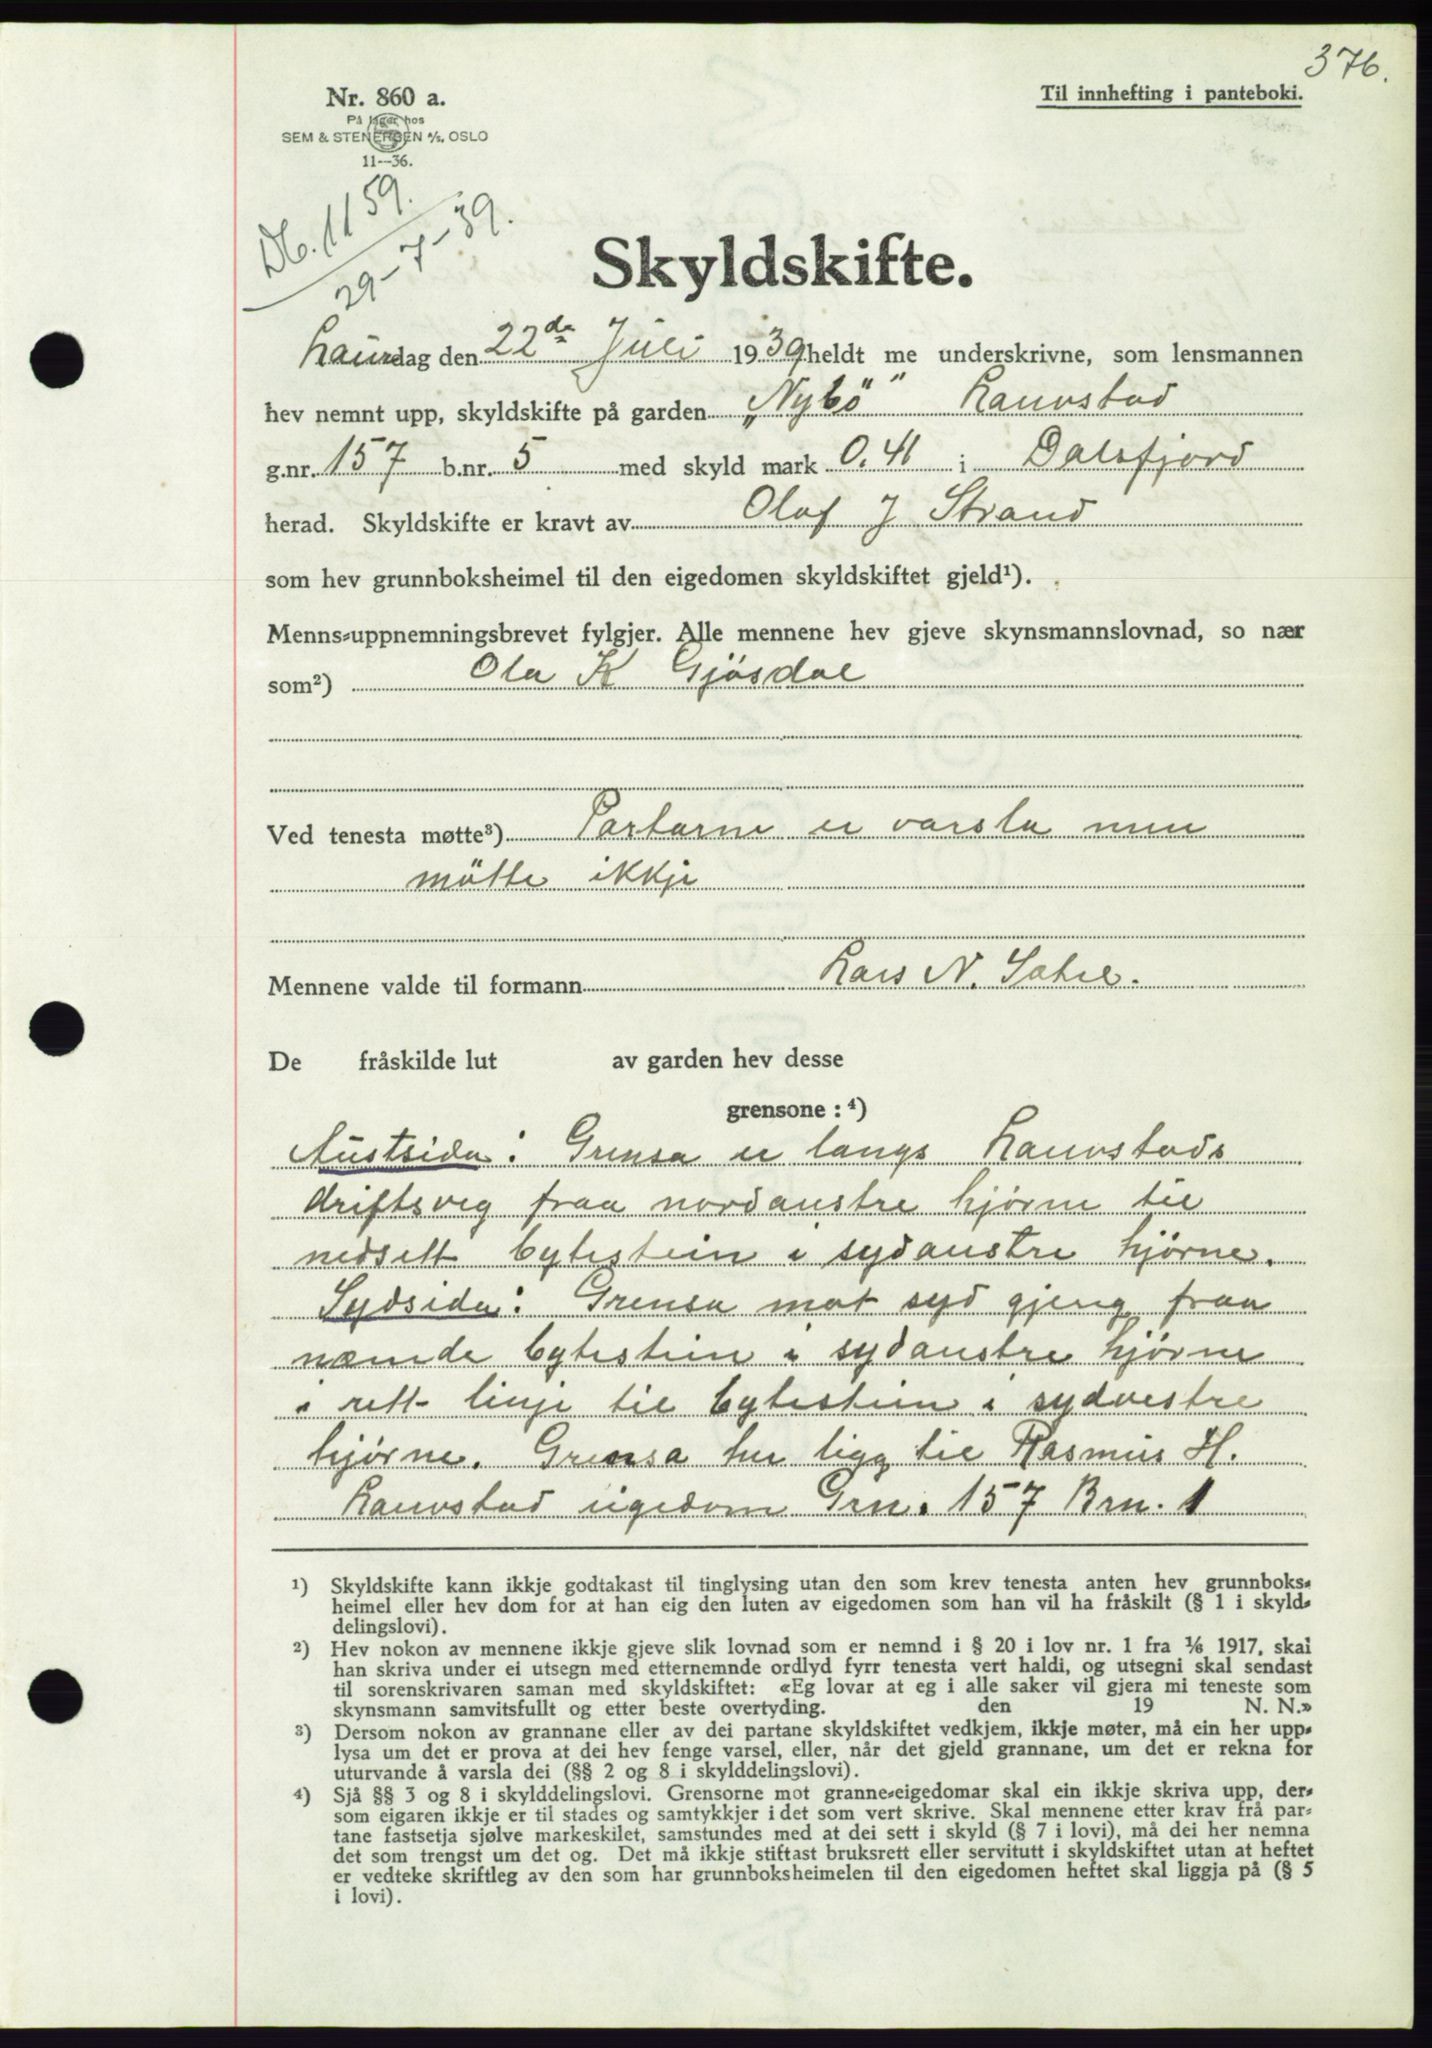 376.
Nr. 860 a.
Til innhefting i panteboki.
På lager hos
SEM & STENERSEN A/S, OSLO
11--36.
Db. 1159.
29-7-39.
Skyldskifte.
Laurdag den 22de Juli 1939 heldt me underskrivne, som lensmannen
hev nemnt upp, skyldskifte på garden „Nybö" Lauvstad
g.nr. 157 b.nr. 5 med skyld mark 0.41 i Dalsfjord
herad. Skyldskifte er kravt av Olaf J Strand
som hev grunnboksheimel til den eigedomen skyldskiftet gjeld¹).
Menns-uppnemningsbrevet fylgjer. Alle mennene hev gjeve skynsmannslovnad, so nær
som²) Ola K Gjösdal
Ved tenesta møtte³) Partarne er varsla men
mötte ikkje
Mennene valde til formann Lars N. Satre.
De fråskilde lut av garden hev desse
grensone : ⁴)
Austsida: Grensa er langs Lauvstads
driftsveg fraa nordaustre hjørne til
nedsett bytestein i sydaustre hjørne.
Sydsida: Grensa mot syd gjeng fraa
næmde bytestein i sydaustre hjørne
i rett linje til bytestein i sydvestre
hjørne. Grensa her ligg til Rasmus H.
Lauvstad eigedom Grn. 157 Brn. 1
¹) Skyldskifte kann ikkje godtakast til tinglysing utan den som krev tenesta anten hev grunnboks-
heimel eller hev dom for at han eig den luten av eigedomen som han vil ha fråskilt (§ 1 i skyld-
delingslovi).
²) Hev nokon av mennene ikkje gjeve slik lovnad som er nemnd i § 20 i lov nr. 1 fra 1/6 1917, skal
han skriva under ei utsegn med etternemnde ordlyd fyrr tenesta vert haldi, og utsegni skal sendast
til sorenskrivaren saman med skyldskiftet: «Eg lovar at eg i alle saker vil gjera mi teneste som
skynsmann samvitsfullt og etter beste overtyding. den 19 N. N.»
³) Dersom nokon av grannane eller av dei partane skyldskiftet vedkjem, ikkje møter, må ein her upp-
lysa um det er prova at dei hev fenge varsel, eller, når det gjeld grannane, um det er rekna for
uturvande å varsla dei (§§ 2 og 8 i skylddelingslovi).
⁴) Sjå §§ 3 og 8 i skylddelingslovi. Grensorne mot granne-eigedomar skal ein ikkje skriva upp, der-
som eigaren ikkje er til stades og samtykkjer i det som vert skrive. Skal mennene etter krav frå par-
tane fastsetja sjølve markeskilet, samstundes med at dei sett i skyld (§ 7 i lovi), må dei her nemna
det som trengst um det og. Det må ikkje stiftast bruksrett eller servitutt i skyldskiftet utan at heftet
er vedteke skriftleg av den som har grunnboksheimelen til den eigedomen heftet skal liggja på (§ 5
i lovi).